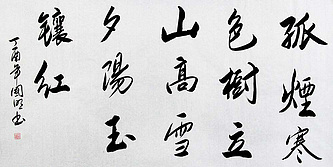 孤煙寒
色樹立
山高雪
夕陽玉
鑲紅
丁酉年国明书